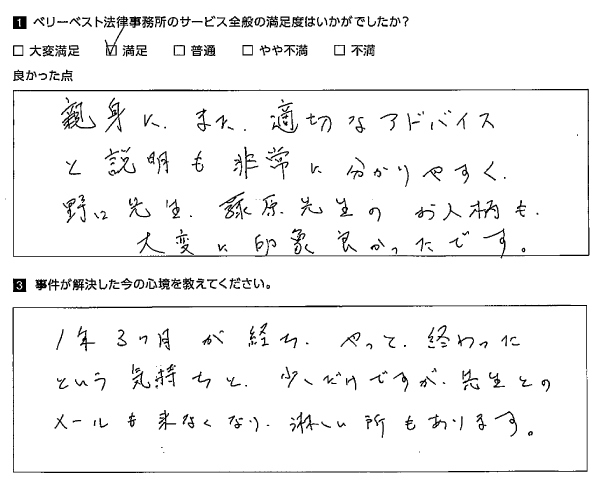 1 ベリーベスト法律事務所のサービス全般の満足度はいかがでしたか？
□ 大変満足 ☑ 満足 □ 普通 □ やや不満 □ 不満
良かった点
親身に、また、適切なアドバイス
と説明も非常に分かりやすく、
野口先生、藤原先生のお人柄も、
大変に印象良かったです。
3 事件が解決した今の心境を教えてください。
1年3ヶ月が経ち、やって、終わった
という気持ちと、少しだけですが、先生との
メールも来なくなり、淋しい所もあります。